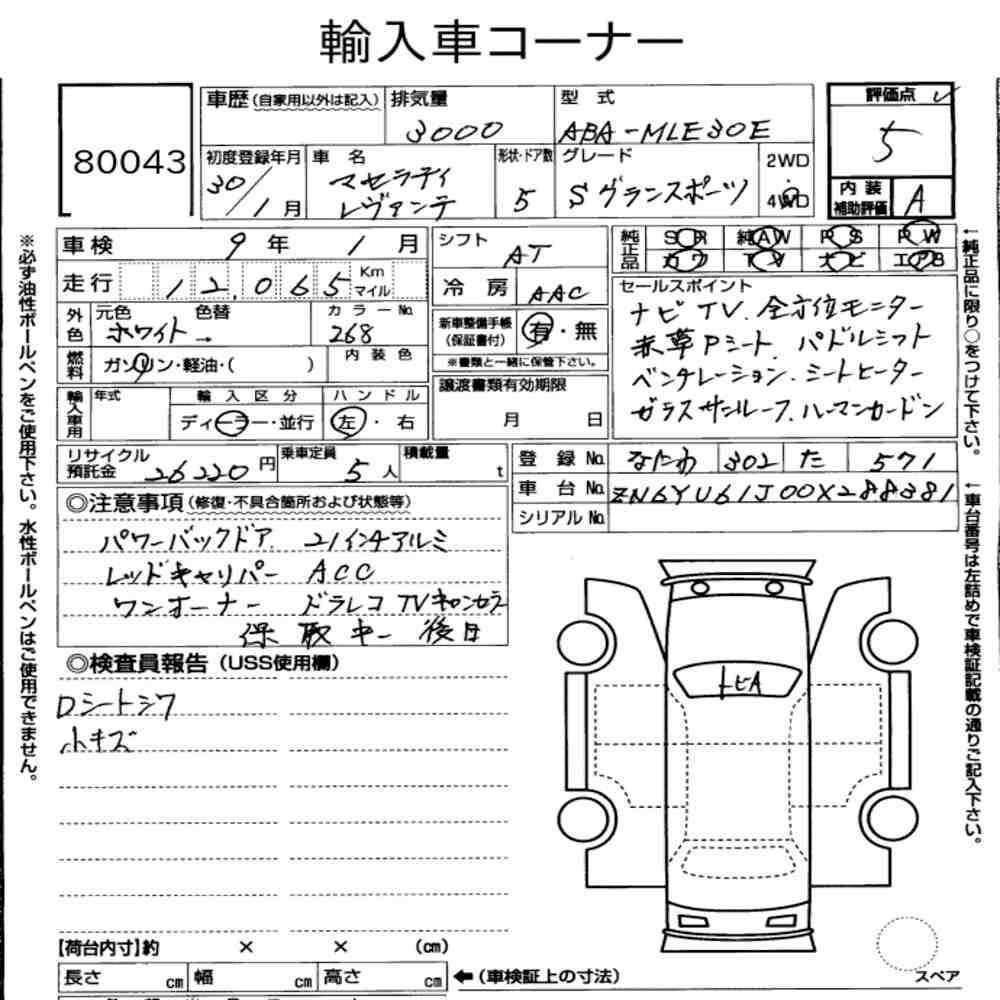 輸入車コーナー
80043
車歴 (自家用以外は記入) 排気量 3000
型式 ABA-MLE30E
評価点 5
初度登録年月 30/1月
車名 マセラティ レヴァンテ
形状・ドア数 5
グレード Sグランスポーツ
2WD・4WD
内装補助評価 A
車検 9年 1月
シフト AT
純正品 SR 純AW PS PW
カワ TV ナビ エアB
走行 12,065 Km マイル
冷房 AAC
外色 元色 ホワイト 色替 → カラーNo. 268
新車整備手帳(保証書付) 有・無
※書類と一緒に保管下さい。
燃料 ガソリン・軽油・( )
内装色
譲渡書類有効期限 月 日
輸入車用 年式 輸入区分 ディーラー・並行 ハンドル 左・右
セールスポイント
ナビ TV. 全方位モニター
赤革Pシート パドルシフト
ベンチレーション. シートヒーター
ガラスサンルーフ. ハーマンカードン
リサイクル預託金 26220円 乗車定員 5人 積載量 t
登録No. なにわ 302 た 571
車台No. ZN6YU61J00X288381
シリアルNo.
◎注意事項 (修復・不具合箇所および状態等)
パワーバックドア. 21インチアルミ
レッドキャリパー ACC
ワンオーナー ドラレコ TVキャンセラ
保 取 キー 後日
◎検査員報告 (USS使用欄)
Dシートシワ
小キズ
トビA
【荷台内寸】約 × × (cm)
長さ cm 幅 cm 高さ cm ←(車検証上の寸法)
スペア
※必ず油性ボールペンをご使用下さい。水性ボールペンはご使用できません。
←純正品に限り○をつけて下さい。
←車台番号は左詰めで車検証記載の通りご記入下さい。